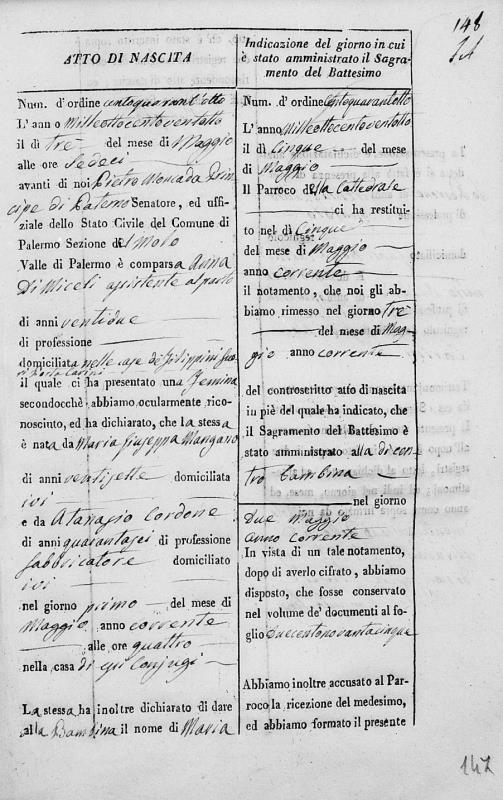 148
ATTO DI NASCITA
Num. d'ordine centoquarant'otto
L'anno Milleottocentoventotto
il dì tre del mese di Maggio
alle ore Sedeci
avanti di noi Pietro Moncada Prin-
cipe di Paternò Senatore, ed uffi-
ziale dello Stato Civile del Comune di
Palermo Sezione del Molo
Valle di Palermo è comparsa Anna
Di Miceli assistente al parto
di anni ventidue
di professione
domiciliata nelle case de Filippini fuo
ri Porta Carini
il quale ci ha presentato una Femina
secondocchè abbiamo ocularmente rico-
nosciuto, ed ha dichiarato, che la stessa
è nata da Maria Giuseppa Mangano
di anni ventisette domiciliata
ivi
e da Atanasio Cordone
di anni quarantasei di professione
fabbricatore domiciliato
ivi
nel giorno primo del mese di
Maggio anno corrente
alle ore quattro
nella casa di essi Conjugi
La stessa ha inoltre dichiarato di dare
alla Bambina il nome di Maria
Indicazione del giorno in cui
è stato amministrato il Sagra-
mento del Battesimo
Num. d'ordine centoquarantotto
L'anno Milleottocentoventotto
il dì Cinque del mese
di Maggio
Il Parroco della Cattedrale
ci ha restitui-
to nel dì Cinque
del mese di Maggio
anno corrente
il notamento, che noi gli ab-
biamo rimesso nel giorno tre
del mese di Mag-
gio anno corrente
del controscritto atto di nascita
in piè del quale ha indicato, che
il Sagramento del Battesimo è
stato amministrato alla di con-
tro bambina
nel giorno
Due Maggio
anno corrente
In vista di un tale notamento,
dopo di averlo cifrato, abbiamo
disposto, che fosse conservato
nel volume de' documenti al fo-
glio Duecentonovantacinque
Abbiamo inoltre accusato al Par-
roco la ricezione del medesimo,
ed abbiamo formato il presente
147